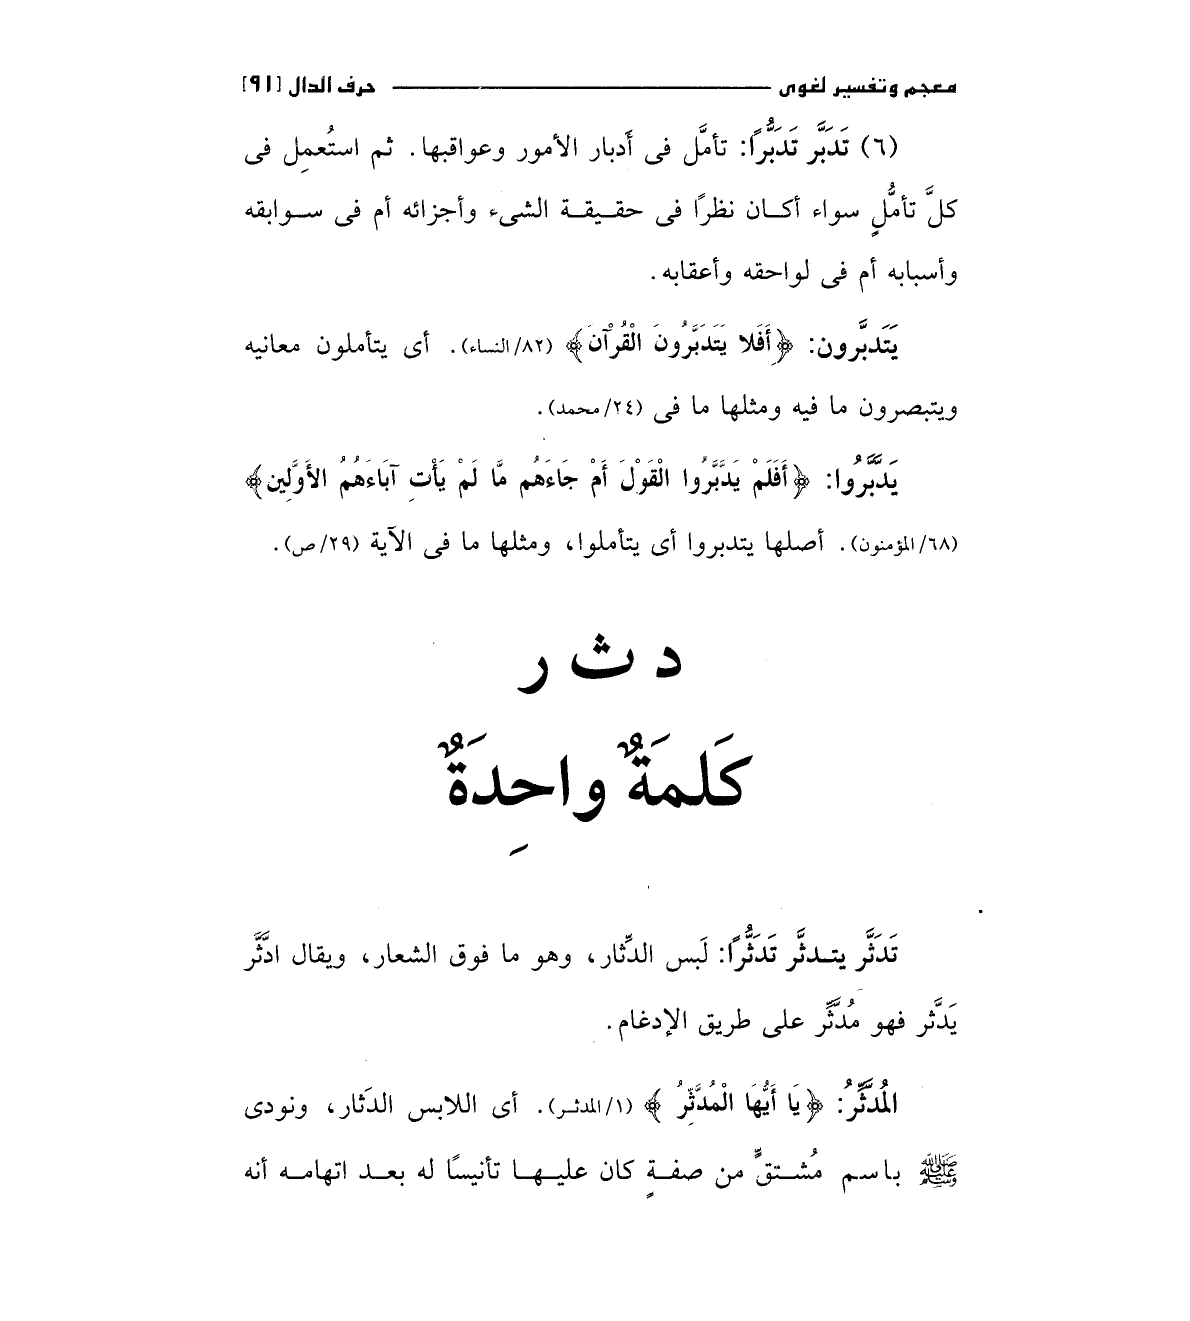 معجم وتفسير لغوى حرف الدال [٩١]
(٦) تَدَبَّر تَدَبُّرًا: تأمَّل فى أَدبار الأمور وعواقبها. ثم استُعمِل فى
كلَّ تأمُّلٍ سواء أكان نظرًا فى حقيقة الشىء وأجزائه أم فى سوابقه
وأسبابه أم فى لواحقه وأعقابه.
يَتَدبَّرون: ﴿أَفَلا يَتَدَبَّرُونَ الْقُرْآنَ﴾ (٨٢/النساء). أى يتأملون معانيه
ويتبصرون ما فيه ومثلها ما فى (٢٤/محمد).
يَدَّبَّرُوا: ﴿أَفَلَمْ يَدَّبَّرُوا الْقَوْلَ أَمْ جَاءَهُم مَّا لَمْ يَأْتِ آبَاءَهُمُ الأَوَّلِين﴾
(٦٨/المؤمنون). أصلها يتدبروا أى يتأملوا، ومثلها ما فى الآية (٢٩/ص).
د ث ر
كَلمَةٌ واحِدَةٌ
تَدَثَّر يتدثَّر تَدَثُّرًا: لَبس الدِّثار، وهو ما فوق الشعار، ويقال ادَّثَّر
يَدَّثر فهو مُدَّثِّر على طريق الإدغام.
المُدَّثِّرُ: ﴿يَا أَيُّهَا الْمُدَّثِّرُ﴾ (١/المدثر). أى اللابس الدَثار، ونودى
ﷺ باسم مُشتقٍّ من صفةٍ كان عليها تأنيسًا له بعد اتهامه أنه